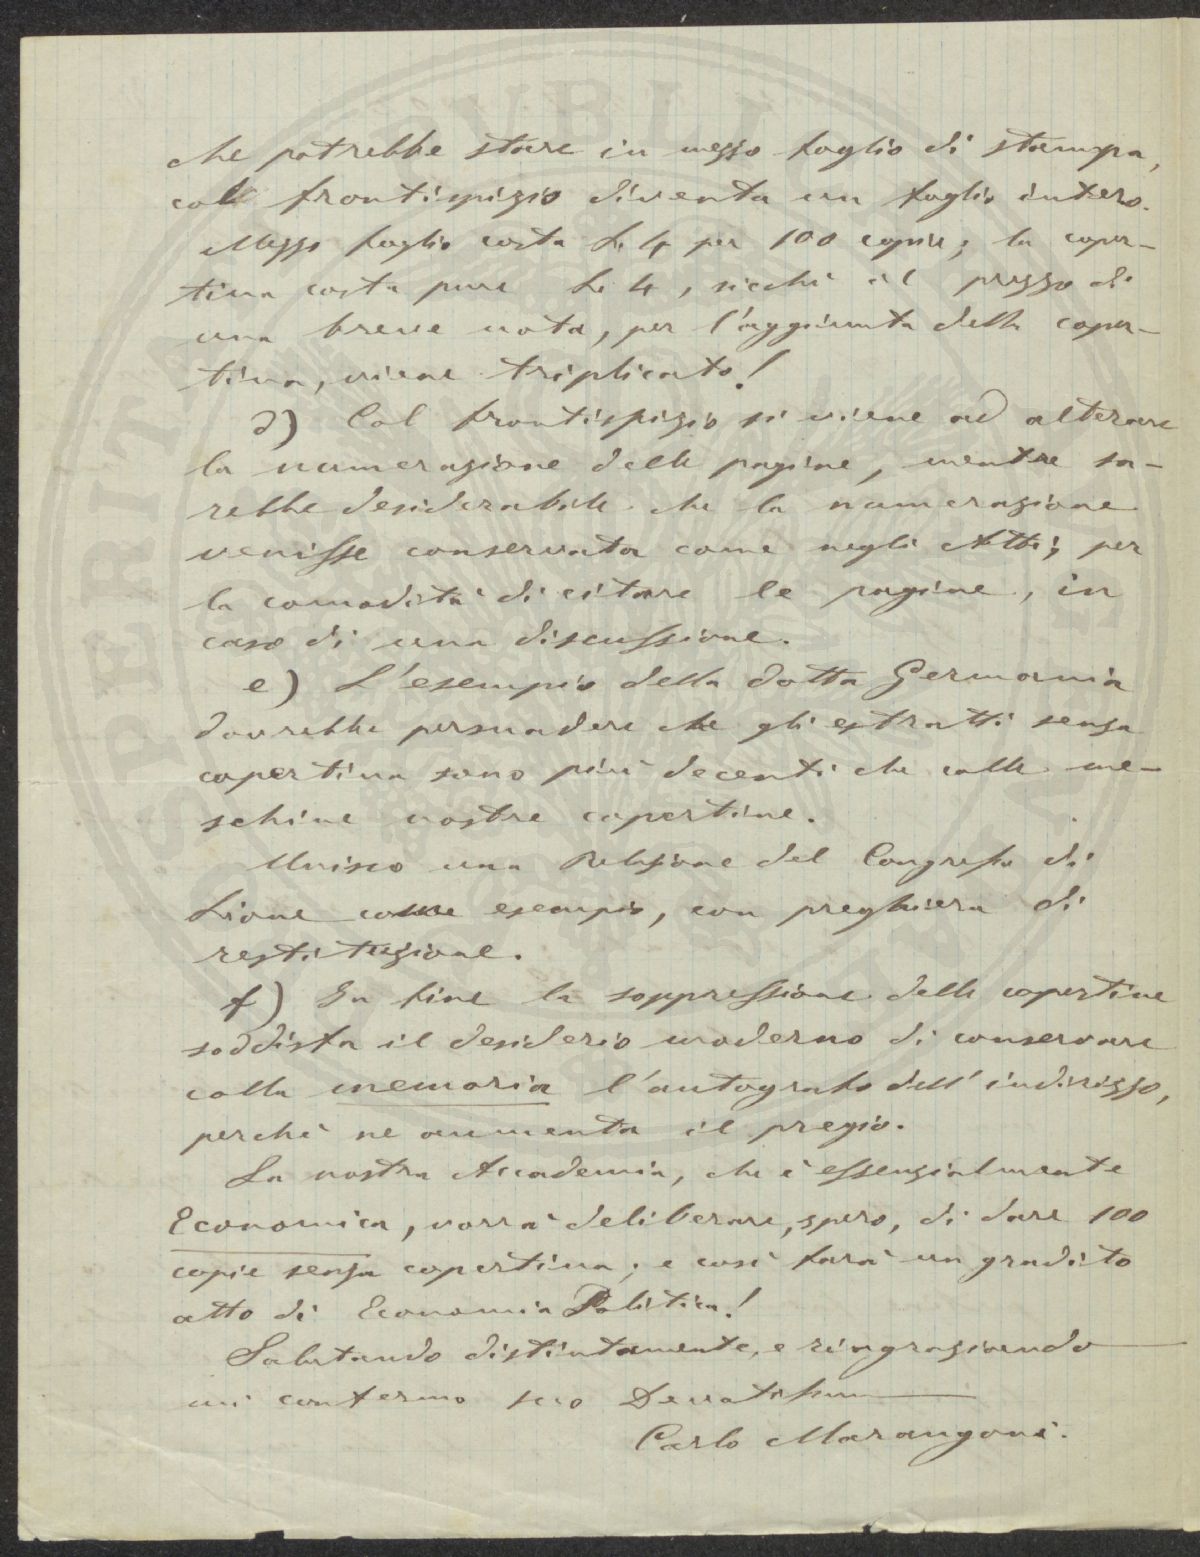 che potrebbe stare in mezzo foglio di stampa,
col frontispizio diventa un foglio intero.
Mezzo foglio costa L. 4 per 100 copie; la coper-
tina costa pure L. 4, sicché il prezzo di
una breve nota, per l'aggiunta della coper-
tina, viene triplicato!
d) Col frontispizio si viene ad alterare
la numerazione delle pagine, mentre sa-
rebbe desiderabile che la numerazione
venisse conservata come negli Atti; per
la comodità di citare le pagine, in
caso di una discussione.
e) L'esempio della dotta Germania
dovrebbe persuadere che gli estratti senza
copertina sono più decenti che colle me-
schine nostre copertine.
Unisco una Relazione del Congresso di
Lione come esempio, con preghiera di
restituzione.
f) In fine la soppressione delle copertine
soddisfa il desiderio moderno di conservare
colla memoria l'autografo dell'indirizzo,
perché ne aumenta il pregio.
La nostra Accademia, che è essenzialmente
Economica, vorrà deliberare, spero, di dare 100
copie senza copertina; e così farà un gradito
atto di Economia Politica!
Salutando distintamente, e ringraziando
mi confermo suo Devotissimo
Carlo Marangoni.